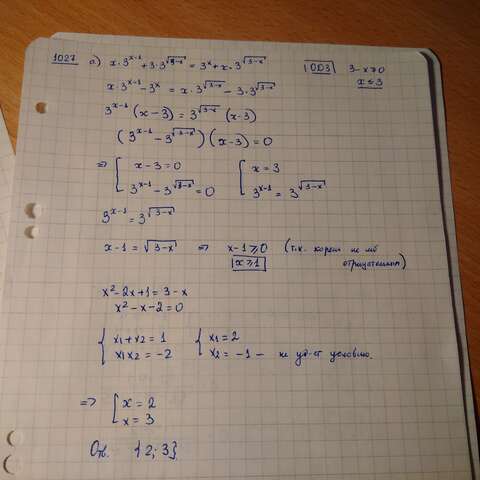 1027 а) x·3^{x-1} + 3·3^{√(3-x)} = 3^x + x·3^{√(3-x)} ОДЗ 3-x≥0
x·3^{x-1} - 3^x = x·3^{√(3-x)} - 3·3^{√(3-x)} x≤3
3^{x-1} (x-3) = 3^{√(3-x)} (x-3)
(3^{x-1} - 3^{√(3-x)}) (x-3) = 0
=> [ x-3=0 [ x=3
3^{x-1} - 3^{√(3-x)} = 0 3^{x-1} = 3^{√(3-x)}
3^{x-1} = 3^{√(3-x)}
x-1 = √(3-x) => x-1≥0 (т.к. корень не мб
x≥1 отрицательным)
x²-2x+1=3-x
x²-x-2=0
{ x1+x2=1 { x1=2
x1x2=-2 x2=-1 - не уд-ет условию.
=> [ x=2
x=3
Отв. {2; 3}.